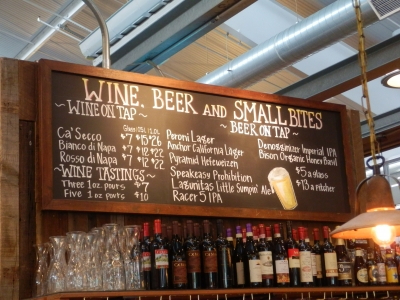 WINE, BEER AND SMALL BITES
~WINE ON TAP~
Glass .5L 1.0L
Ca'Secco $7 $15 26
Bianco di Napa $7 $12 $22
Rosso di Napa $7 $12 $22
~WINE TASTINGS~
Three 1oz pours $7
Five 1oz pours $10
~BEER ON TAP~
Peroni Lager
Anchor California Lager
Pyramid Hefeweizen
Speakeasy Prohibition
Lagunitas Little Sumpin' Ale
Racer 5 IPA
Denogginizer Imperial IPA
Bison Organic Honey Basil
$5 a glass
$13 a pitcher